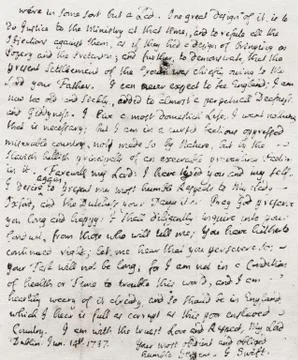 were in some sort but a Lad. One great design of it, is to
do Justice to the Ministry at that time, and to refute all the
Objections against them, as if they had a design of bringing in
Popery and the Pretender; and further to demonstrate, that the
present Settlement of the Crown was chiefly owing to my
Lord your Father. I can never expect to see England: I am
now too old and sickly, added to almost a perpetual Deafness
and Giddyness. I live a most domestick Life. I want nothing
that is necessary; but I am in a cursed factious oppressed
miserable country, not made so by Nature, but by the
Slavish hellish principles of an execrable prevailing Faction
in it. Farewell my Lord. I have tyred you and my self.
I desire again to present my most humble Respects to My Lady
Oxford, and the Dutchess your Daughter. Pray God preserve
you long and happy. I shall diligently inquire into your
Conduct, from those who will tell me; You have hitherto
continued right; let me hear that you persevere so.
Your Task will not be long, for I am not in a Condition
of health or Time to trouble this world, and I am
heartily weary of it already, and so should be in England
which I hear is full as corrupt as this poor enslaved
Country. I am with the truest Love and Respect, My Lord
Dublin. Jun. 14th 1737. Your most obedient and obliged
humble J. Swift.